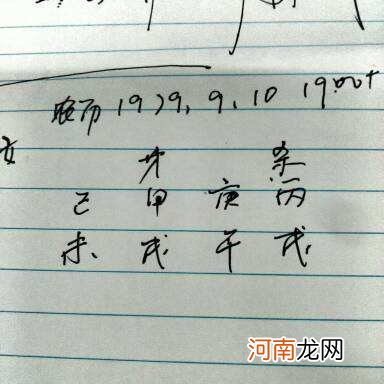 农历 1979, 9, 10 19:00+
女
才 杀
己 甲 庚 丙
未、 戌 午 戌
河南龙网